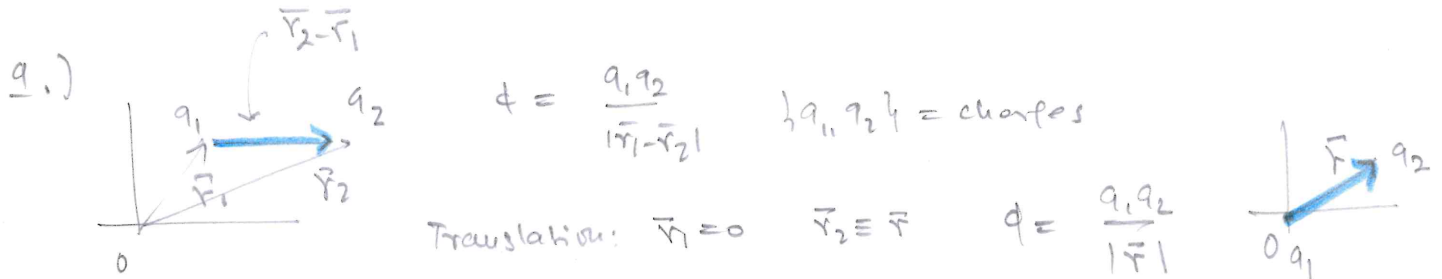 r̄₂-r̄₁
a.)
q₁ q₂ r̄₁ r̄₂ 0
ϕ = q₁q₂ / |r̄₁-r̄₂| {q₁, q₂} = charges
Translation: r̄₁=0 r̄₂≡r̄ ϕ = q₁q₂ / |r̄|
r̄ q₂ 0 q₁